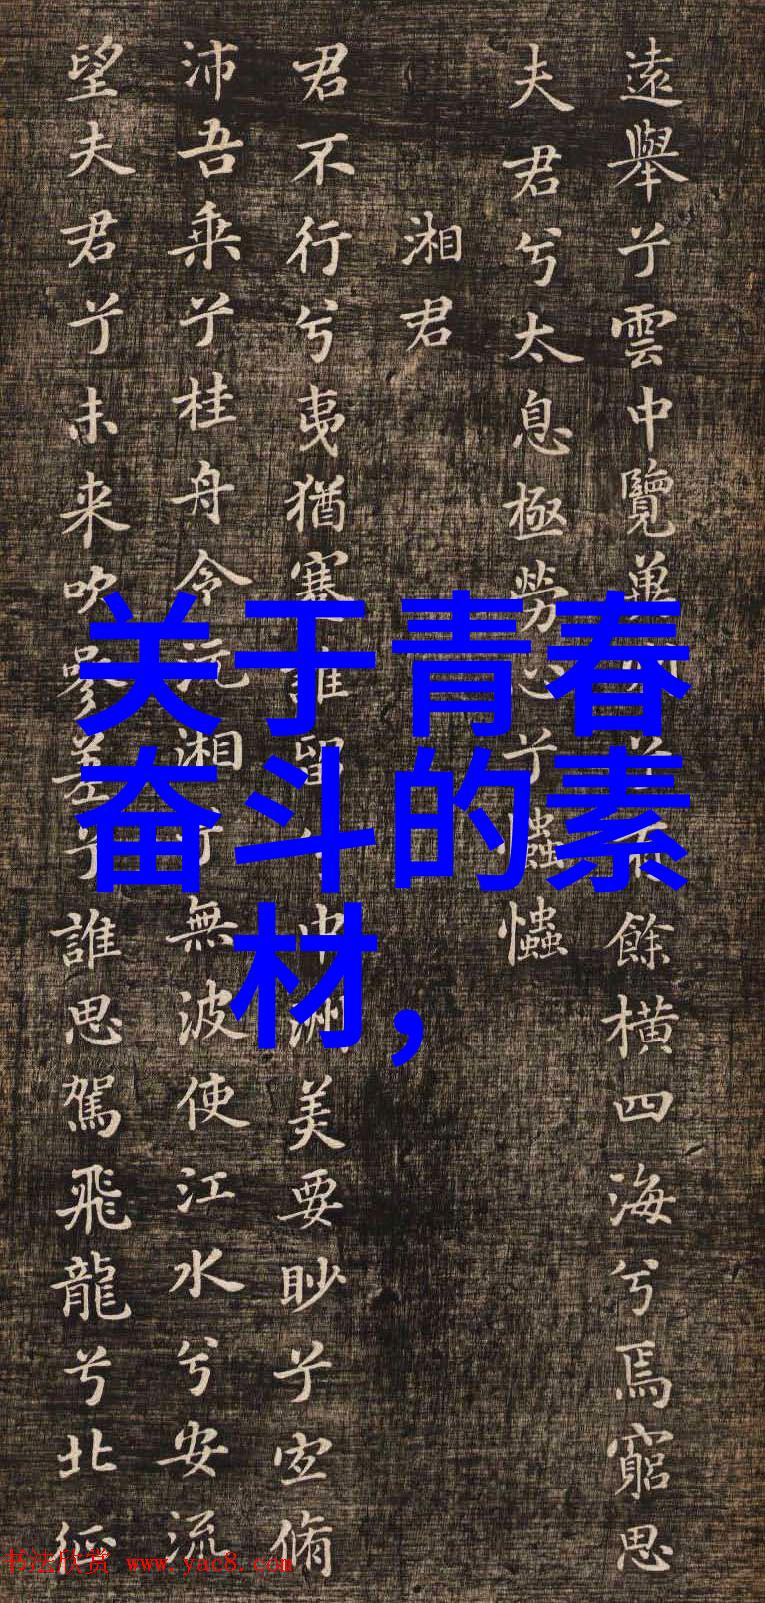 遠舉兮雲中覽兾餘橫四海兮焉窮思
夫君兮太息極勞心兮𢥞𢥞
湘君
君不行兮夷猶蹇誰留中洲美要眇兮宜脩
沛吾乘兮桂舟令沅湘兮無波使江水兮安流
望夫君兮未来吹參差兮誰思駕飛龍兮北征
关于青春
奋斗的素
材,
书法欣赏 www.yac8.com